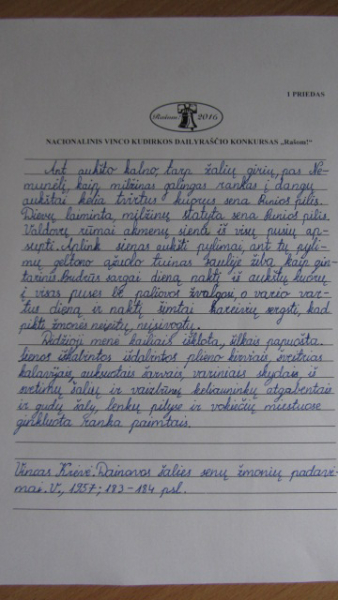 1 PRIEDAS
Rašom 2016
NACIONALINIS VINCO KUDIRKOS DAILYRAŠČIO KONKURSAS „Rašom!“
Ant aukšto kalno, tarp žalių girių, pas Ne-
munėlį kaip milžinas galingas rankas į dangų
aukštai kelia tvirtus kuorus sena Runios pilis.
Dievų laiminta, milžinų statyta sena Runios pilis.
Valdovų rūmai akmenų siena iš visų pusių ap-
supti. Aplink sienas aukšti pylimai, ant tų pyli-
mų geltono ąžuolo tvinas saulėje žiba kaip gin-
tarinis. Budrūs sargai dieną naktį iš aukštų kuorų
į visas puses be paliovos žvalgosi, o vario var-
tus dieną ir naktį šimtai kareivių sergsti, kad
pikti žmonės neįeitų, neįsivogtų.
Didžioji menė kailiais išklota, šilkais papuošta.
Sienos iškabintos išdabintos plieno kirviais, šveitriais
kalavijais, auksuotais šarvais, variniais skydais, iš
svetimų šalių ir vaizbūnų keliauninkų atgabentais
ir gudų šaly, lenkų pilyse ir vokiečių miestuose
ginkluota ranka paimtais.
Vincas Krėvė. Dainavos šalies senų žmonių padavi-
mai. V., 1957; 183-184 psl.